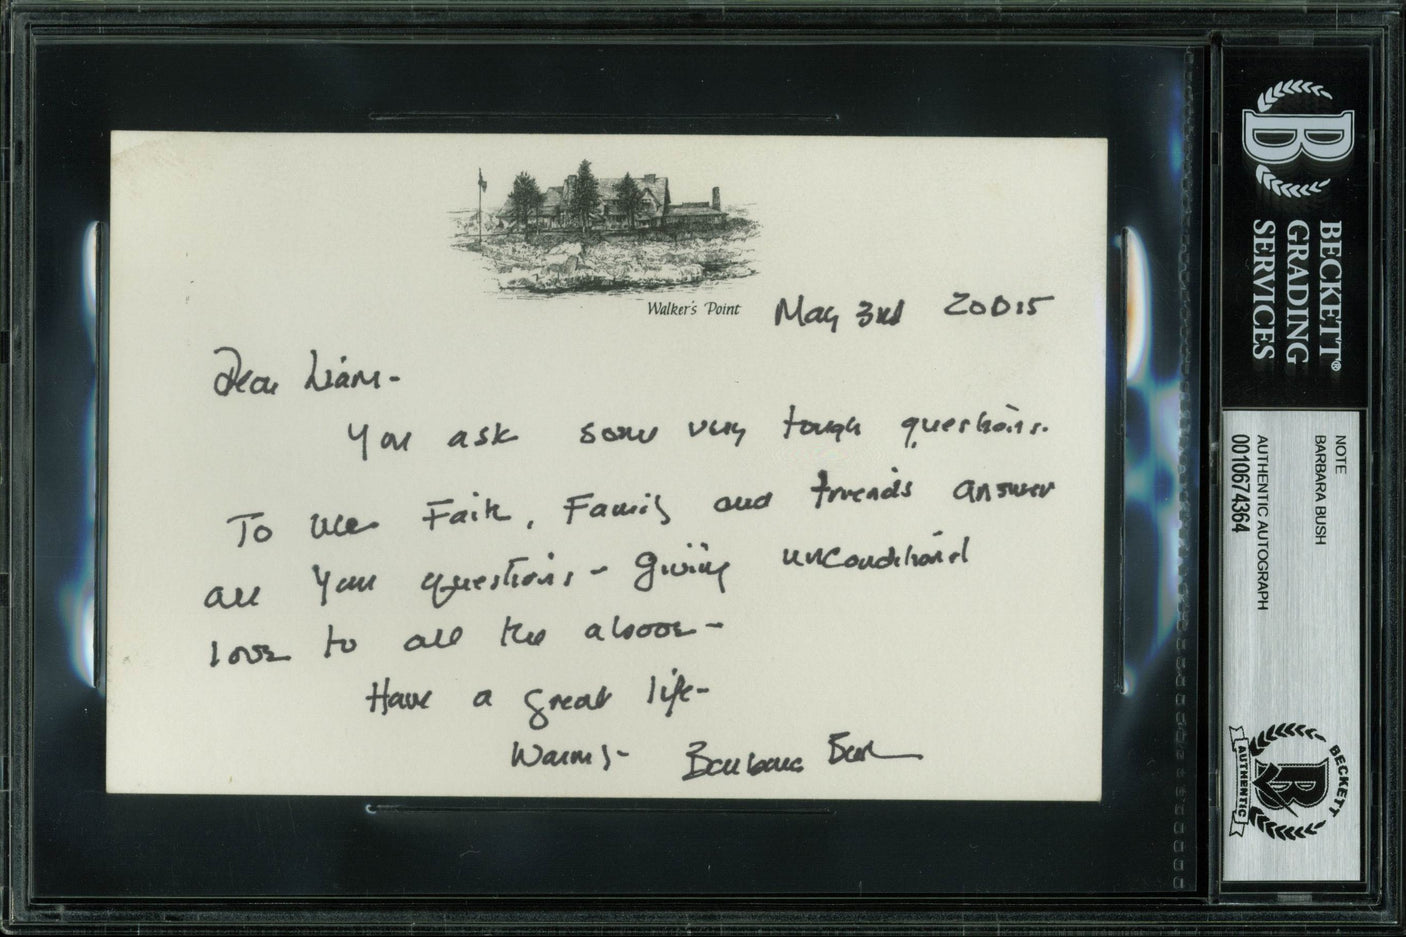 Walker's Point
May 3rd 20015
Dear Liam-
You ask some very tough questions.
To me Faith, Family and friends answer
all your questions - giving unconditional
love to all the above -
Have a great life-
Warmly- Barbara Bush
B
BECKETT®
GRADING
SERVICES
NOTE
BARBARA BUSH
AUTHENTIC AUTOGRAPH
0010674364
BECKETT
B
AUTHENTIC